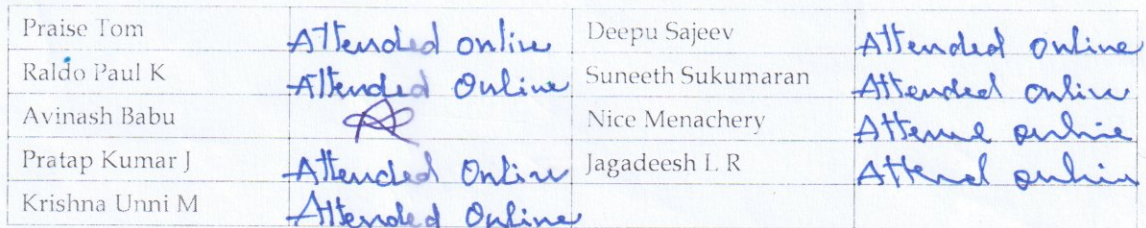 Praise Tom Attended online Deepu Sajeev Attended Online
Raldo Paul K Attended Online Suneeth Sukumaran Attended online
Avinash Babu Nice Menachery Attend online
Pratap Kumar J Attended Online Jagadeesh L R Attend online
Krishna Unni M Attended Online